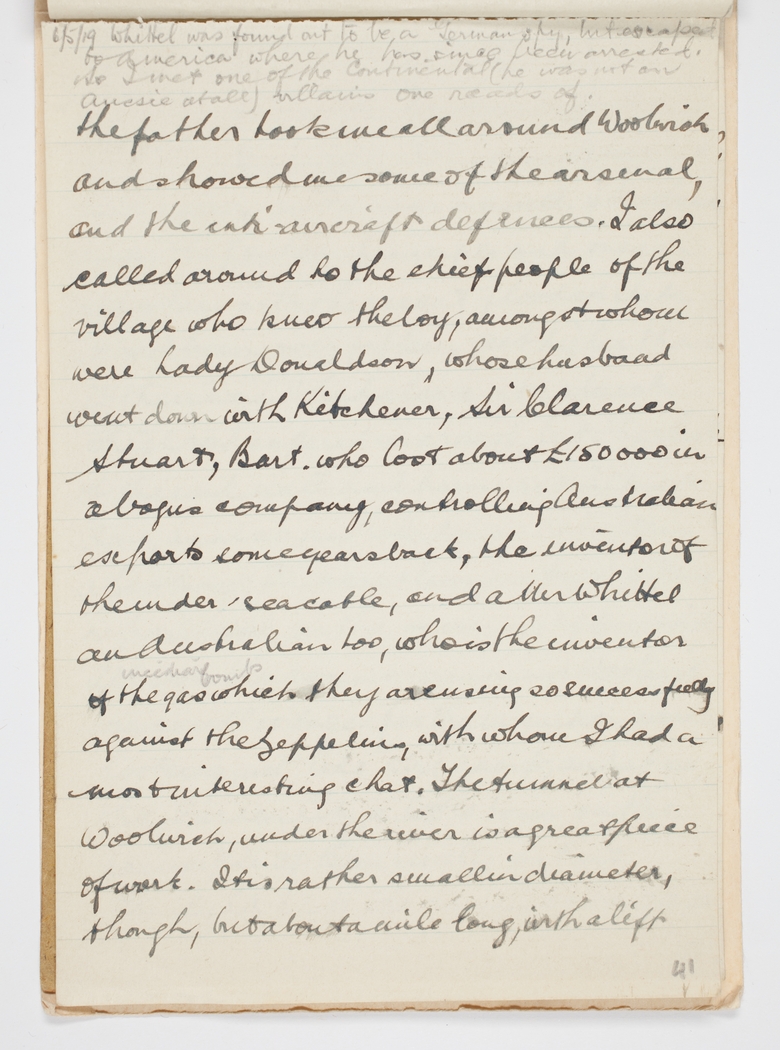 6/5/19 Whittel was found out to be a German spy, but escaped
to America where he has since been arrested.
So I met one of the Continental (he was not an
Aussie at all) villains one reads of.
the father took me all around Woolwich,
and showed me some of the arsenal,
and the anti-aircraft defences. I also
called around to the chief people of the
village who knew the boy, amongst whom
were Lady Donaldson, whose husband
went down with Kitchener, Sir Clarence
Stuart, Bart. who lost about £150000 in
a bogus company, controlling Australian
exports some years back, the inventor of
the under-sea cable, and a Mr Whittel
an Australian too, who is the inventor
bombs
of the gas which they are using so successfully
against the Zeppelins, with whom I had a
most interesting chat. The tunnel at
Woolwich, under the river is a great piece
of work. It is rather small in diameter,
though, but about a mile long, with a lift
41